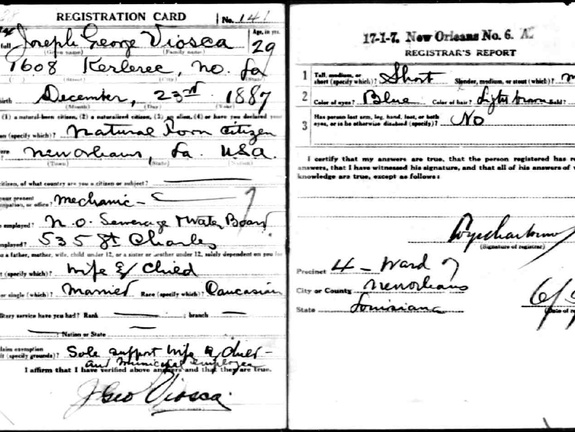 REGISTRATION CARD
No. 141
Age, in yrs.
full Joseph George Viosca 29
(Given name) (Family name)
1608 Kerlerec, N.O. La
birth December, 23rd 1887
(Month) (Day) (Year)
(1) a natural-born citizen, (2) a naturalized citizen, (3) an alien, (4) or have you declared your
(specify which)? Natural born citizen
New Orleans, La. U.S.A.
(Town) (State) (Nation)
citizen, of what country are you a citizen or subject?
your present
occupation, or office? mechanic
employed? N.O. Sewerage & Water Board
employed? 535 St Charles
a father, mother, wife, child under 12, or a sister or brother under 12, solely dependent on you for
(specify which)? Wife & Child
or single (which)? Married Race (specify which)? Caucasian
military service have you had? Rank branch
Nation or State
claim exemption
(specify grounds)? Sole support wife & child
and municipal employee
I affirm that I have verified above answers and that they are true.
J Geo Viosca.
17-1-7. New Orleans No. 6. A.
REGISTRAR'S REPORT
1 Tall, medium, or short (specify which)? Short Slender, medium, or stout (which)?
2 Color of eyes? Blue Color of hair? Light brown Bald?
3 Has person lost arm, leg, hand, foot, or both eyes, or is he otherwise disabled (specify)? No
I certify that my answers are true, that the person registered has
answers, that I have witnessed his signature, and that all of his answers of
knowledge are true, except as follows:
(Signature of registrar)
Precinct 4 - Ward 7
City or County New Orleans
State Louisiana